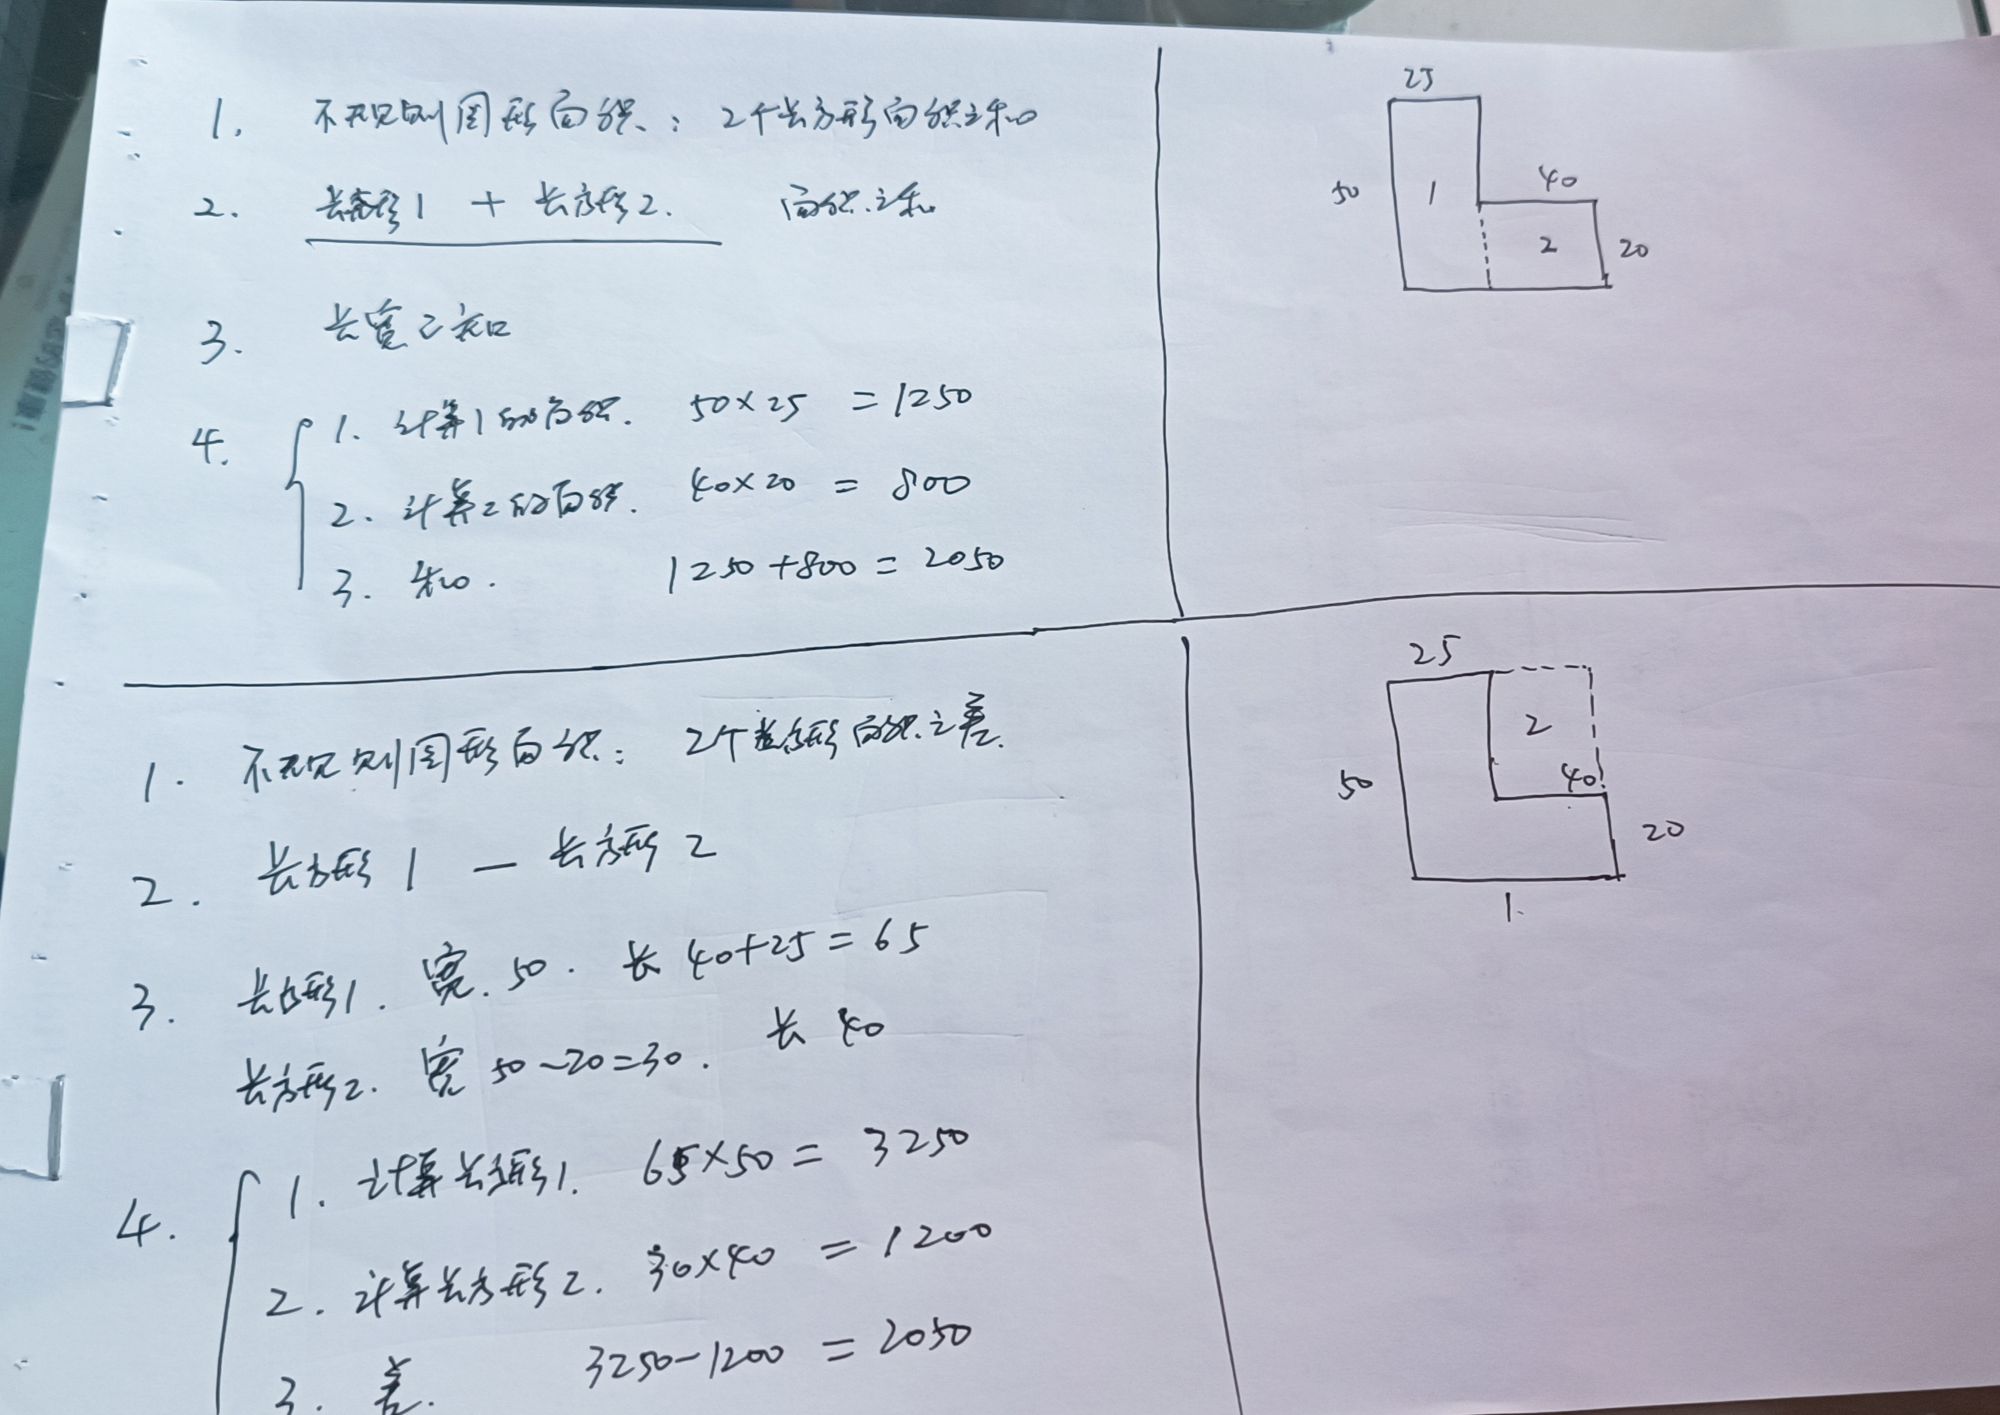 1. 不规则图形面积：2个长方形面积之和
2. 长方形1 + 长方形2. 面积之和
3. 长宽已知
4. 1. 计算1的面积. 50×25 = 1250
2. 计算2的面积. 40×20 = 800
3. 和. 1250+800=2050
25
50
1
40
2
20
1. 不规则图形面积：2个长方形面积之差.
2. 长方形1 — 长方形2
3. 长方形1. 宽. 50. 长 40+25=65
长方形2. 宽 50-20=30. 长 40
4. 1. 计算长方形1. 65×50= 3250
2. 计算长方形2. 30×40 = 1200
3. 差. 3250-1200 = 2050
25
2
50
40
20
1.